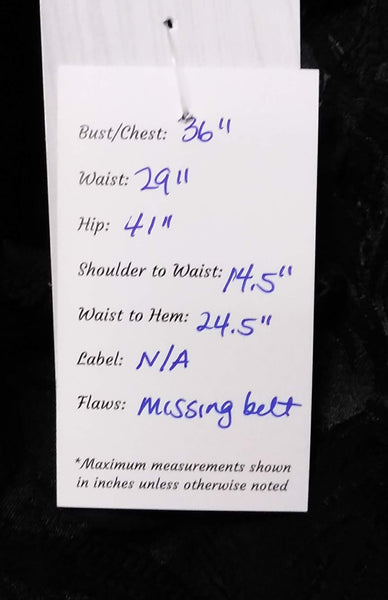 Bust/Chest: 36"
Waist: 29"
Hip: 41"
Shoulder to Waist: 14.5"
Waist to Hem: 24.5"
Label: N/A
Flaws: Missing belt
*Maximum measurements shown
in inches unless otherwise noted